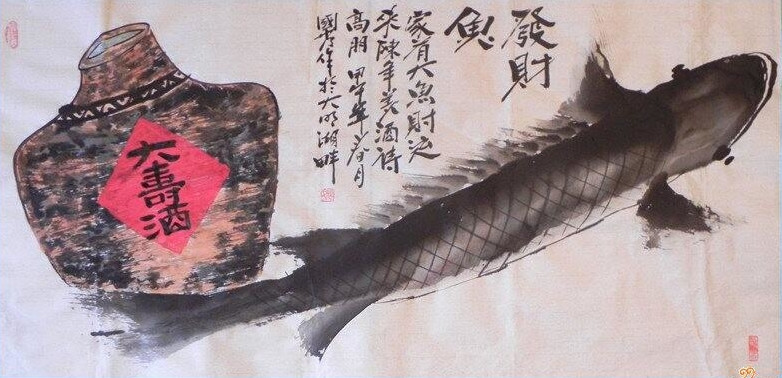 發財
魚
家有大魚財运
来陳年美酒待
高朋 甲午年春月
作於大明湖畔
大壽酒